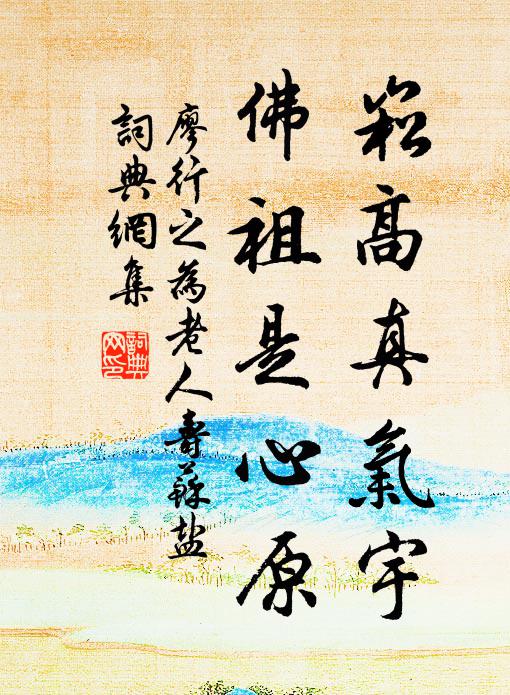 崧高真氣宇
佛祖是心原
廖行之為老人壽蘇盐
詞典網集
詞典
网印